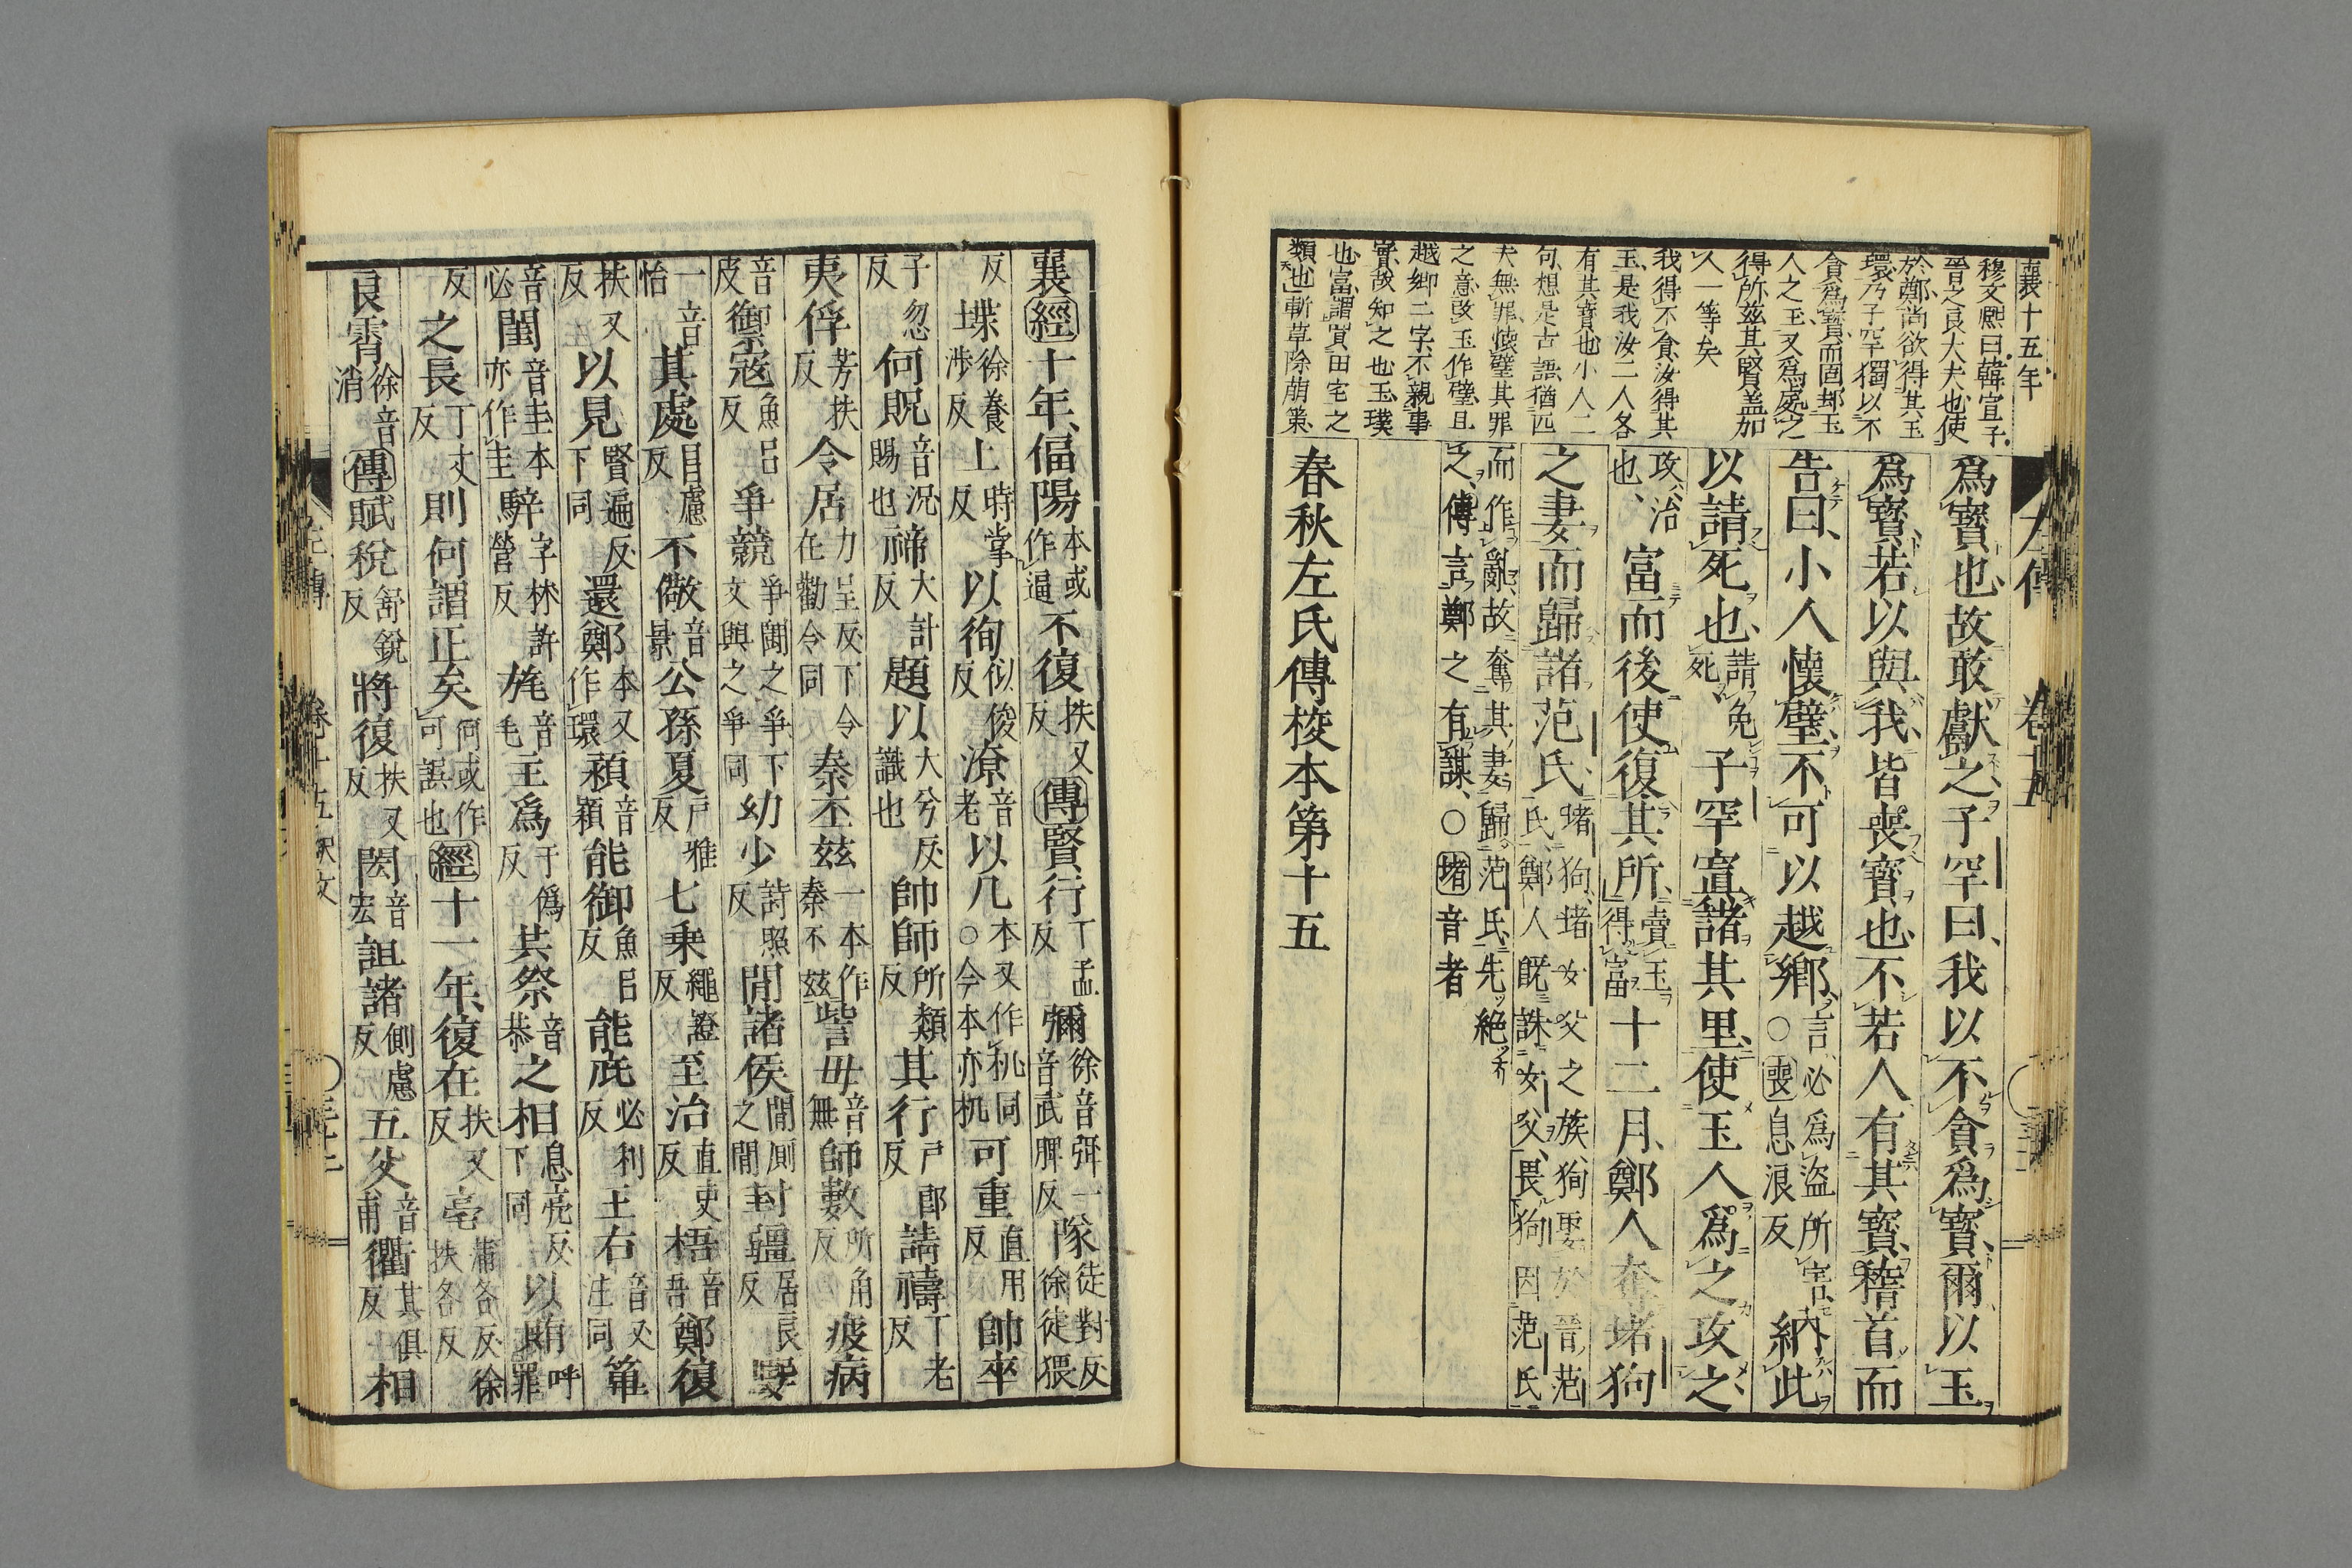 襄十五年
穆文熈曰韓宣子
晉之良大夫也使
於鄭尚欲得其玉
環乃子罕獨以不
貪爲寶而固却玉
人之玉又爲處之
得所茲其賢盖加
人一等矣
我得不貪汝得其
玉是我汝二人各
有其寶也小人二
句想是古語猶匹
夫無罪懷璧其罪
之意改玉作璧且
越郷二字不親事
實故知之也玉璞
也富謂買田宅之
類也斬草除萠策
爲寶也故敢獻之子罕曰我以不貪爲寶爾以玉
爲寶若以與我皆喪寶也不若人有其寶稽首而
告曰小人懷璧不可以越鄉言必爲盜所害○喪息浪反納此
以請死也請免死子罕寘諸其里使玉人爲之攻之
攻治也富而後使復其所賣玉得富十二月鄭人奪堵狗
之妻而歸諸范氏堵狗堵女父之族狗娶於晉范氏鄭人既誅女父畏狗因范氏
而作亂故奪其妻歸范氏先絶之傳言鄭之有謀○堵音者
春秋左氏傳校本第十五
襄經十年偪陽本或作逼不復扶又反傳賢行丁孟反彌徐音弭一音武脾反隊徒對反徐徒猥
反堞徐養涉反上時掌反以徇似俊反潦音老以几本又作机同○今本亦机可重直用反帥卒
子忽反何貺音況賜也禘大計反題以大兮反識也帥師所類反其行戶郎反請禱丁老反
夷俘芳扶反令居力呈反下令在勸令同秦丕茲一本作秦不茲訾毋音無師數所角反疲病
音皮禦寇魚呂反爭競爭鬪之爭下文與之爭同幼少詩照反閒諸侯閒厠之閒封疆居良反
一音怡其處昌慮反不儆音景公孫夏戶雅反七乘繩證反至治直吏反梧音吾鄭復
扶又反以見賢遍反下同還鄭本又作環潁音穎能御魚呂反能庇必利反王右音又注同篳
音必閨音圭本亦作圭騂字林許營反旄音毛主爲于僞反共祭音恭之相息亮反下同以賄呼罪
反之長丁丈反則何謂正矣何或作可誤也經十一年復在扶又反亳蒲各反徐扶各反
良霄徐音消傳賦稅舒銳反將復扶又反閎音宏詛諸側慮反五父音甫衢其俱反相